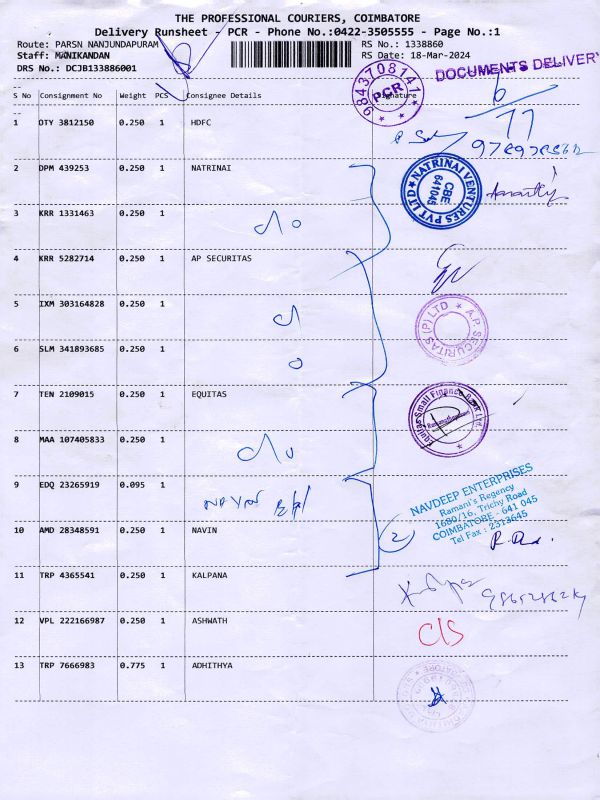 THE PROFESSIONAL COURIERS, COIMBATORE
Delivery Runsheet - PCR - Phone No.:0422-3505555 - Page No.:1
Route: PARSN NANJUNDAPURAM RS No.: 1338860
Staff: MANIKANDAN RS Date: 18-Mar-2024
DRS No.: DCJB133886001
DOCUMENTS DELIVER
9843708141
PCR
S No Consignment No Weight PCS Consignee Details Signature
6
77
1 OTY 3812150 0.250 1 HDFC
2 DPM 439253 0.250 1 NATRINAI
NATRINAI VENTURES PVT LTD
CBE
641045
3 KRR 1331463 0.250 1
4 KRR 5282714 0.250 1 AP SECURITAS
5 IXM 303164828 0.250 1
A.P. SECURITAS (P) LTD
6 SLM 341893685 0.250 1
7 TEN 2109015 0.250 1 EQUITAS
Equitas Small Finance Bank Ltd.
Ramanathapuram
8 MAA 107405833 0.250 1
9 EDQ 23265919 0.095 1
NAVDEEP ENTERPRISES
Ramani's Regency
1680/16, Trichy Road
COIMBATORE - 641 045
Tel Fax : 2313645
10 AMD 28348591 0.250 1 NAVIN
2
11 TRP 4365541 0.250 1 KALPANA
12 VPL 222166987 0.250 1 ASHWATH
C/S
13 TRP 7666983 0.775 1 ADHITHYA